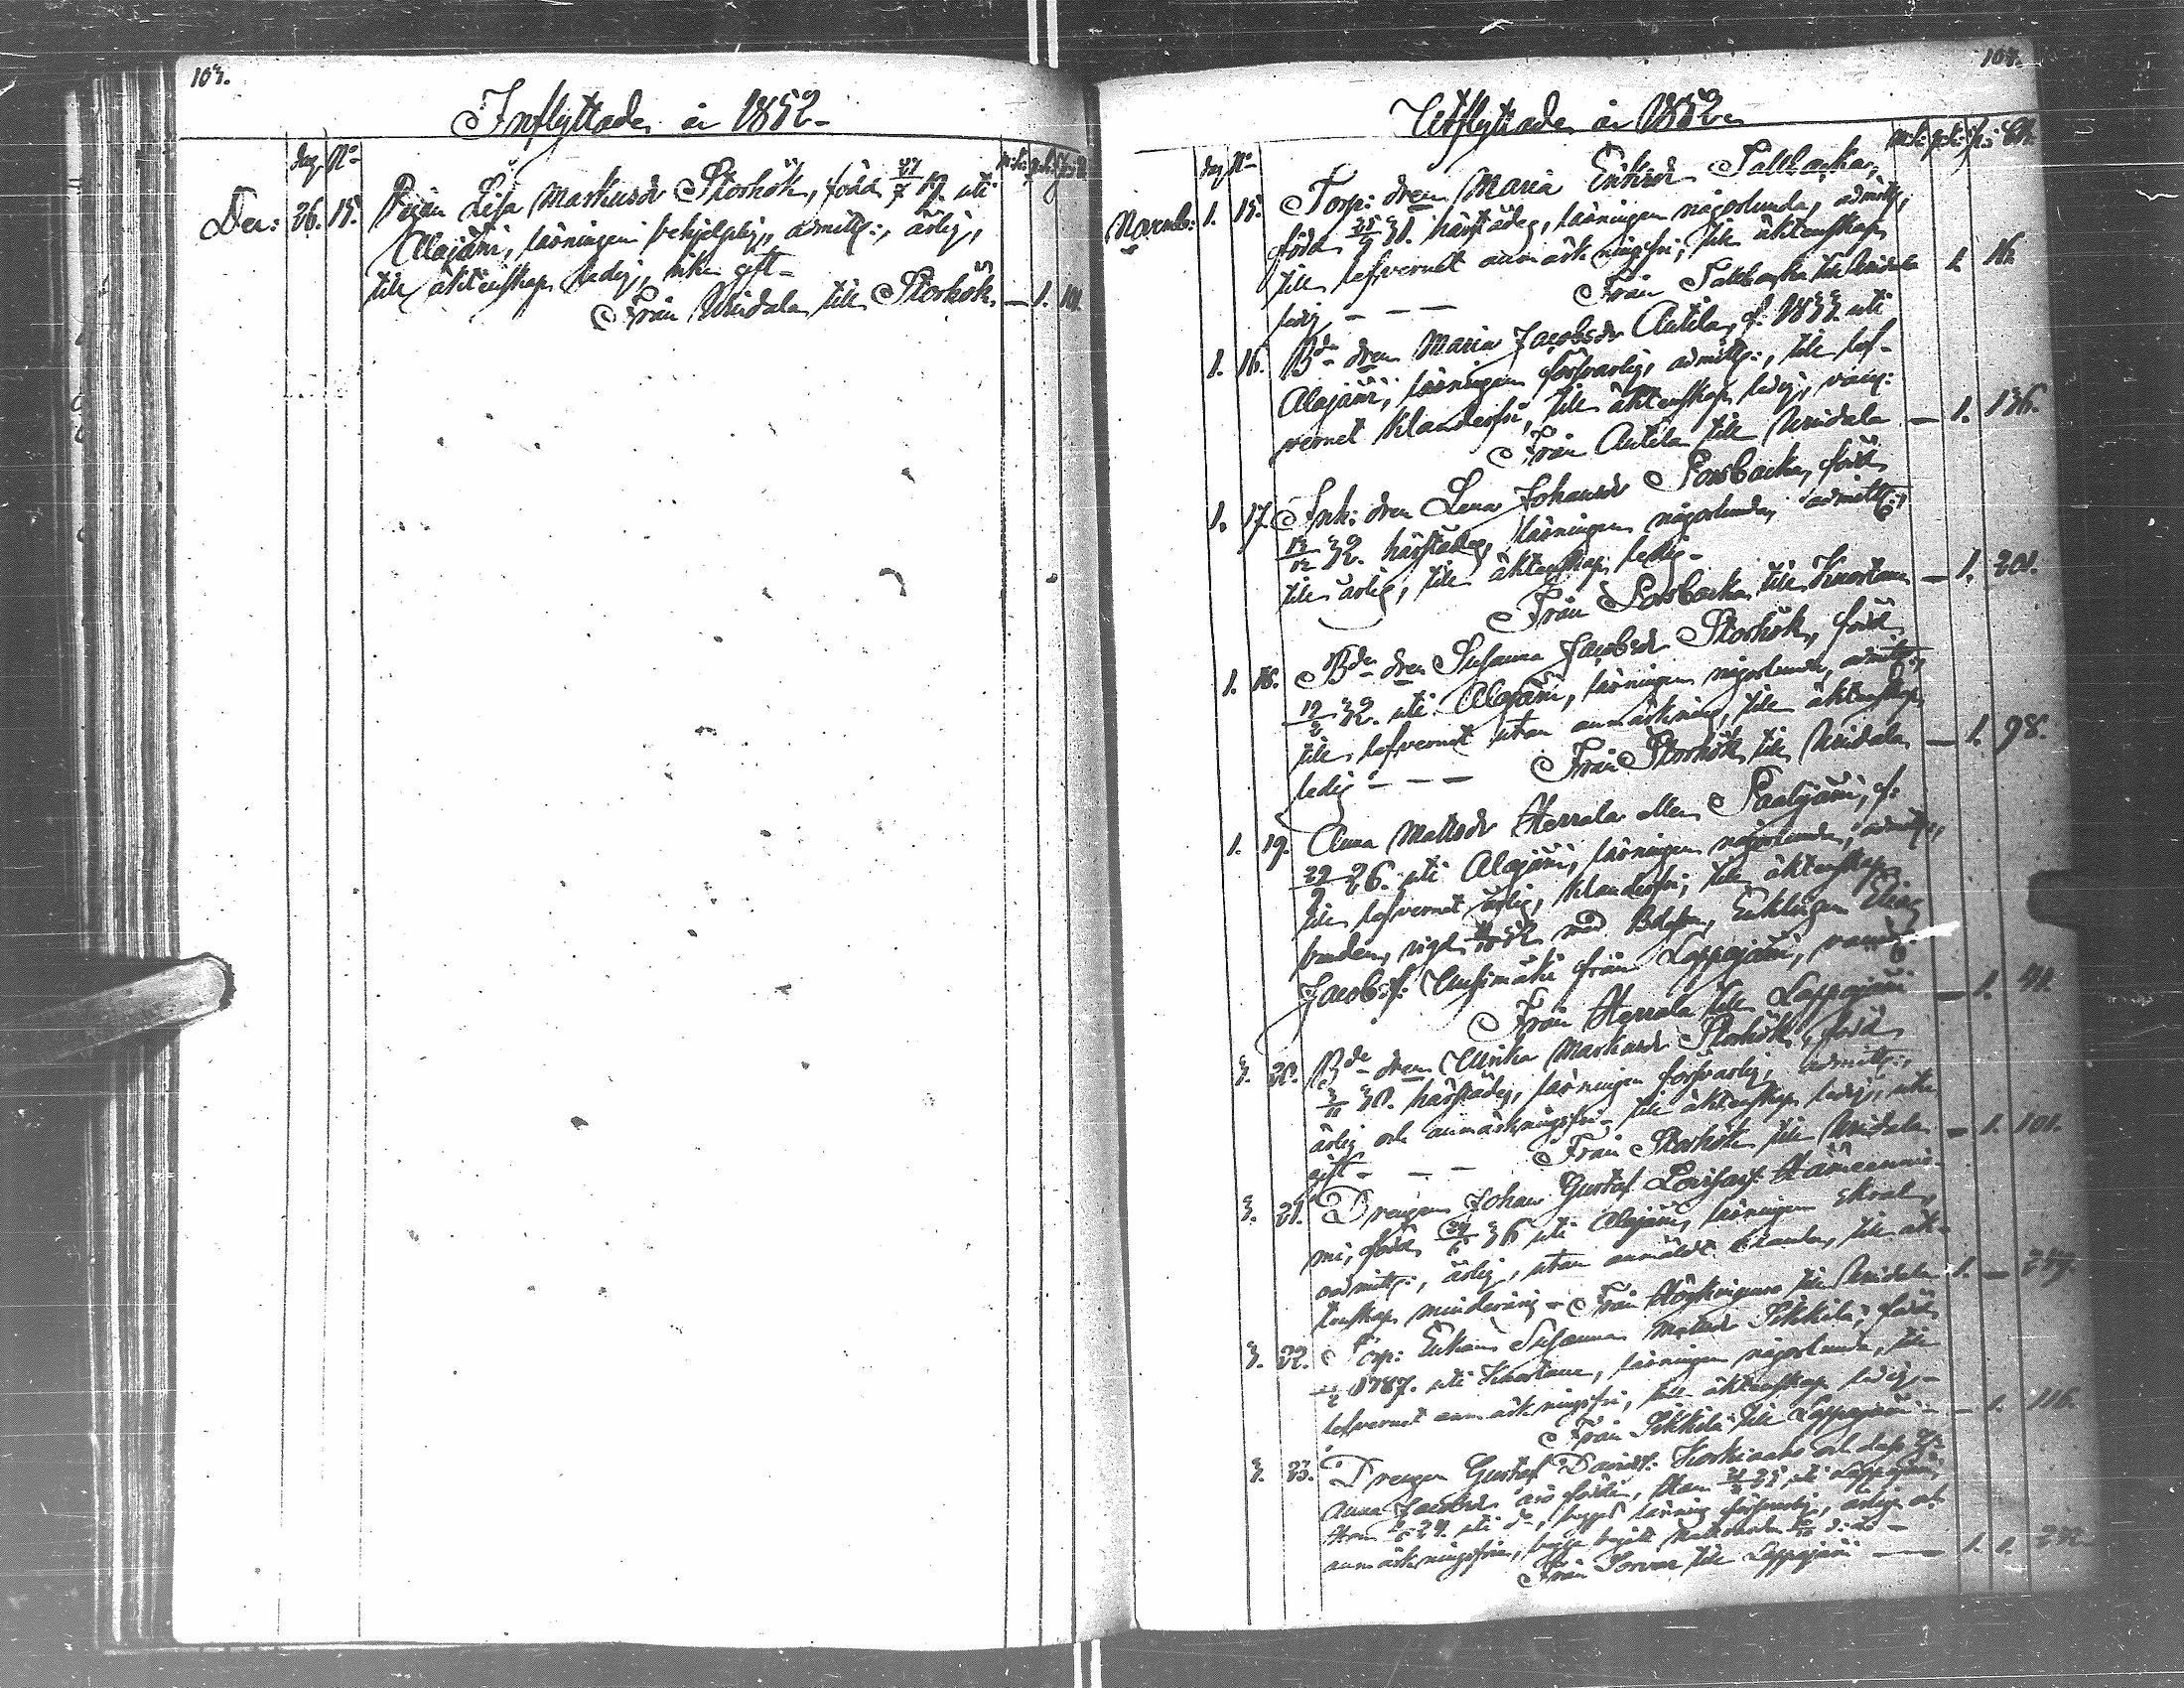 103.
Inflyttade år 1852
dag No
Dec: 26. 15. Pigan Lisa Markusdr Storhök, född 27/7 19. uti
Alajärvi, läsningen behjelplig, admitt:, ärlig,
till äktenskap ledig, icke gift
Från Uusidala till Storhök. — 1. 101.
104.
Utflyttade år 1852
dag No
Novemb: 1. 15. Torp: dren Maria Eriksdr Sallbacka,
född 25/9 31. härstädes, läsningen någorlunda, admitt,
till lefvernet anmärkningsfri, till äktenskap
ledig — — — Från Sallbacka till Uusidala 1. 16.
1. 16. Bde dren Maria Jacobsdr Autila, f: 1833 uti
Alajärvi, läsningen försvarlig, admitt:, till lef-
vernet klanderfri, till äktenskap ledig, vacc:
Från Autila till Uusidala — 1. 136.
1. 17. Inh: dren Lena Johansdr Porsbacka, född
13/12 32. härstädes, läsningen någorlunda, admitt:,
till ärlig, till äktenskap ledig
Från Porsbacka till Kuortane — 1. 201.
1. 18. Bde dren Susanna Jacobsdr Storhök, född
19/2 32. uti Alajärvi, läsningen någorlunda, admitt:,
till lefvernet utan anmärkning, till äktenskap
ledig — — — Från Storhök till Uusidala — 1. 98.
1. 19. Anna Mattsdr Herrala eller Paalijärvi, f:
29/9 26. uti Alajärvi, läsningen någorlunda, admitt:,
till lefvernet ärlig, klanderfri, till äktenskap
bunden, vigd med Enklingen Elias
Jacobsf: Uusimäki från Lappajärvi, vacc:
Från Herrala till Lappajärvi — 1. 41.
3. 20. Bde dren Ulrika Markusdr Storhök, född
3/11 30. härstädes, läsningen försvarlig, admitt:,
ärlig och anmärkningsfri till äktenskap ledig, icke
gift — — Från Storhök till Uusidala — 1. 101.
3. 21. Drengen Johan Gustaf Lovisasf: Hämeennie-
mi, född 24/6 36 uti Alajärvi, läsningen skral,
admitt:, ärlig, utan anmäldt klander, till äk-
tenskap minderårig Från till Uusidala 1. —
3. 22. Torp: Enkan Susanna Mattsdr Pikkila, född
1787. uti Kuortane, läsningen någorlunda, till
lefvernet anmärkningsfri, till äktenskap ledig —
Från Pikkila till Lappajärvi — 1. 116.
3. 23. Drengen Gustaf Davidsf: Koskiaho och dess
Anna Jacobsdr äro födde, uti Lappajärvi,
Hon uti do, begges läsning försvarlig, ärlige och
anmärkningsfria,
Från till Lappajärvi — 1. 1.